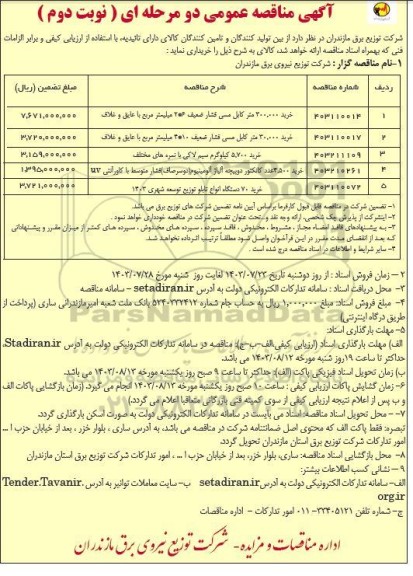 آگهی مناقصه عمومی دو مرحله ای ( نوبت دوم )
شرکت توزیع برق مازندران در نظر دارد از بین تولید کنندگان و تامین کنندگان کالای دارای تائیدیه، با استفاده از ارزیابی کیفی و برابر الزامات
فنی که بهمراه اسناد مناقصه ارائه خواهد شد، کالای به شرح ذیل را خریداری نماید :
۱-نام مناقصه گزار : شرکت توزیع نیروی برق مازندران
ردیف شماره مناقصه شرح مناقصه مبلغ تضمین (ریال)
۱ ۴۰۳۱۱۰۰۱۴ خرید ۲۰۰,۰۰۰ متر کابل مسی فشار ضعیف ۴*۲ میلیمتر مربع با عایق و غلاف ۷,۶۷۱,۰۰۰,۰۰۰
۲ ۴۰۳۱۱۰۰۱۷ خرید ۳۰,۰۰۰ متر کابل مسی فشار ضعیف ۱۰*۴ میلیمتر مربع با عایق و غلاف ۳,۷۲۰,۰۰۰,۰۰۰
۳ ۴۰۳۲۱۱۱۰۹ خرید ۵,۷۰۰ کیلوگرم سیم لاکی با نمره های مختلف ۳,۱۵۹,۰۰۰,۰۰۰
۴ ۴۰۳۲۱۰۲۶۱ خرید ۳,۵۰۰عدد کانکتور دوپیچه آلیاژ آلومینیوم(دوسرصاف)فشار متوسط با کاورآنتی uv ۱,۳۹۵,۰۰۰,۰۰۰
۵ ۴۰۳۱۱۰۰۷۲ خرید ۷۰ دستگاه انواع تابلو توزیع توسعه شهری ۱۴۰۳ ۳,۷۲۱,۰۰۰,۰۰۰
۱- تضمین شرکت در مناقصه قابل قبول کارفرما براساس آیین نامه تضمین شرکت های توزیع برق می باشد.
۲- اینترنکت از پذیرش چک شخصی، ارائه وجه نقد و ... تحت عنوان تضمین شرکت در مناقصه خودداری خواهد نمود.
۳- به پیشنهادهای فاقد امضاء مجاز ، مشروط ، مخدوش ، فاقد سپرده ، سپرده های مخدوش ، سپرده های کمتر از میزان مقرر و پیشنهاداتی
که بعد از انقضای مدت مقرر در این فراخوان واصل شود مطلقاً ترتیب اثر داده نخواهد شد.
۴- سایر شرایط و اطلاعات در اسناد مناقصه درج شده است .
۲ – زمان فروش اسناد : از روز دوشنبه تاریخ ۱۴۰۳/۰۷/۲۳ لغایت روز شنبه مورخ ۱۴۰۳/۰۷/۲۸
۳- محل دریافت اسناد : سامانه تدارکات الکترونیکی دولت به آدرس setadiran.ir – سامانه مناقصه
۴- مبلغ فروش اسناد: مبلغ ۱,۰۰۰,۰۰۰ ریال به حساب جام شماره ۵۲۴۰۳۳۴۱۲ بانک ملت شعبه امیرمازندرانی ساری (پرداخت از
طریق درگاه اینترنتی)
۵- مهلت بارگذاری اسناد:
الف) مهلت بارگذاری اسناد (ارزیابی کیفی،الف-ب-ج): مناقصه در سامانه تدارکات الکترونیکی دولت به آدرس Stadiran.ir،
حداکثر تا ساعت ۱۹ روز شنبه مورخ ۱۴۰۳/۰۸/۱۲ می باشد.
ب) زمان تحویل اسناد فیزیکی پاکت (الف): حداکثر تا ساعت ۹ صبح روز یکشنبه مورخه ۱۴۰۳/۰۸/۱۳ می باشد.
۶- زمان گشایش پاکات ارزیابی کیفی : ساعت ۱۰ صبح روز یکشنبه مورخه ۱۴۰۳/۰۸/۱۳ انجام می گیرد. (زمان بازگشایی پاکات الف
و ب پس از اعلام نتیجه ارزیابی کیفی از سوی کمیته فنی بازرگانی متعاقبا اعلام می گردد.)
۷- محل تحویل اسناد مناقصه: اسناد می بایست در سامانه تدارکات الکترونیکی دولت به صورت اسکن بارگذاری گردد.
تبصره: فقط پاکت الف که محتوی اصل ضمانتنامه شرکت در مناقصه می باشد، به آدرس ساری ، بلوار خزر ، بعد از خیابان حزب ا... ،
امور تدارکات شرکت توزیع برق استان مازندران تحویل گردد.
۸- محل بازگشایی اسناد مناقصه: ساری، بلوار خزر، بعد از خیابان حزب ا ... ، امور تدارکات شرکت توزیع برق استان مازندران
۹ – نشانی کسب اطلاعات بیشتر:
الف- سامانه تدارکات الکترونیکی دولت به آدرس setadiran.ir ب- سایت معاملات توانیر به آدرس Tender.Tavanir.
org.ir
ج- شماره تلفن ۳۳۴۰۵۱۲۱-۰۱۱ امور تدارکات – اداره مناقصات
اداره مناقصات و مزایده- شرکت توزیع نیروی برق مازندران